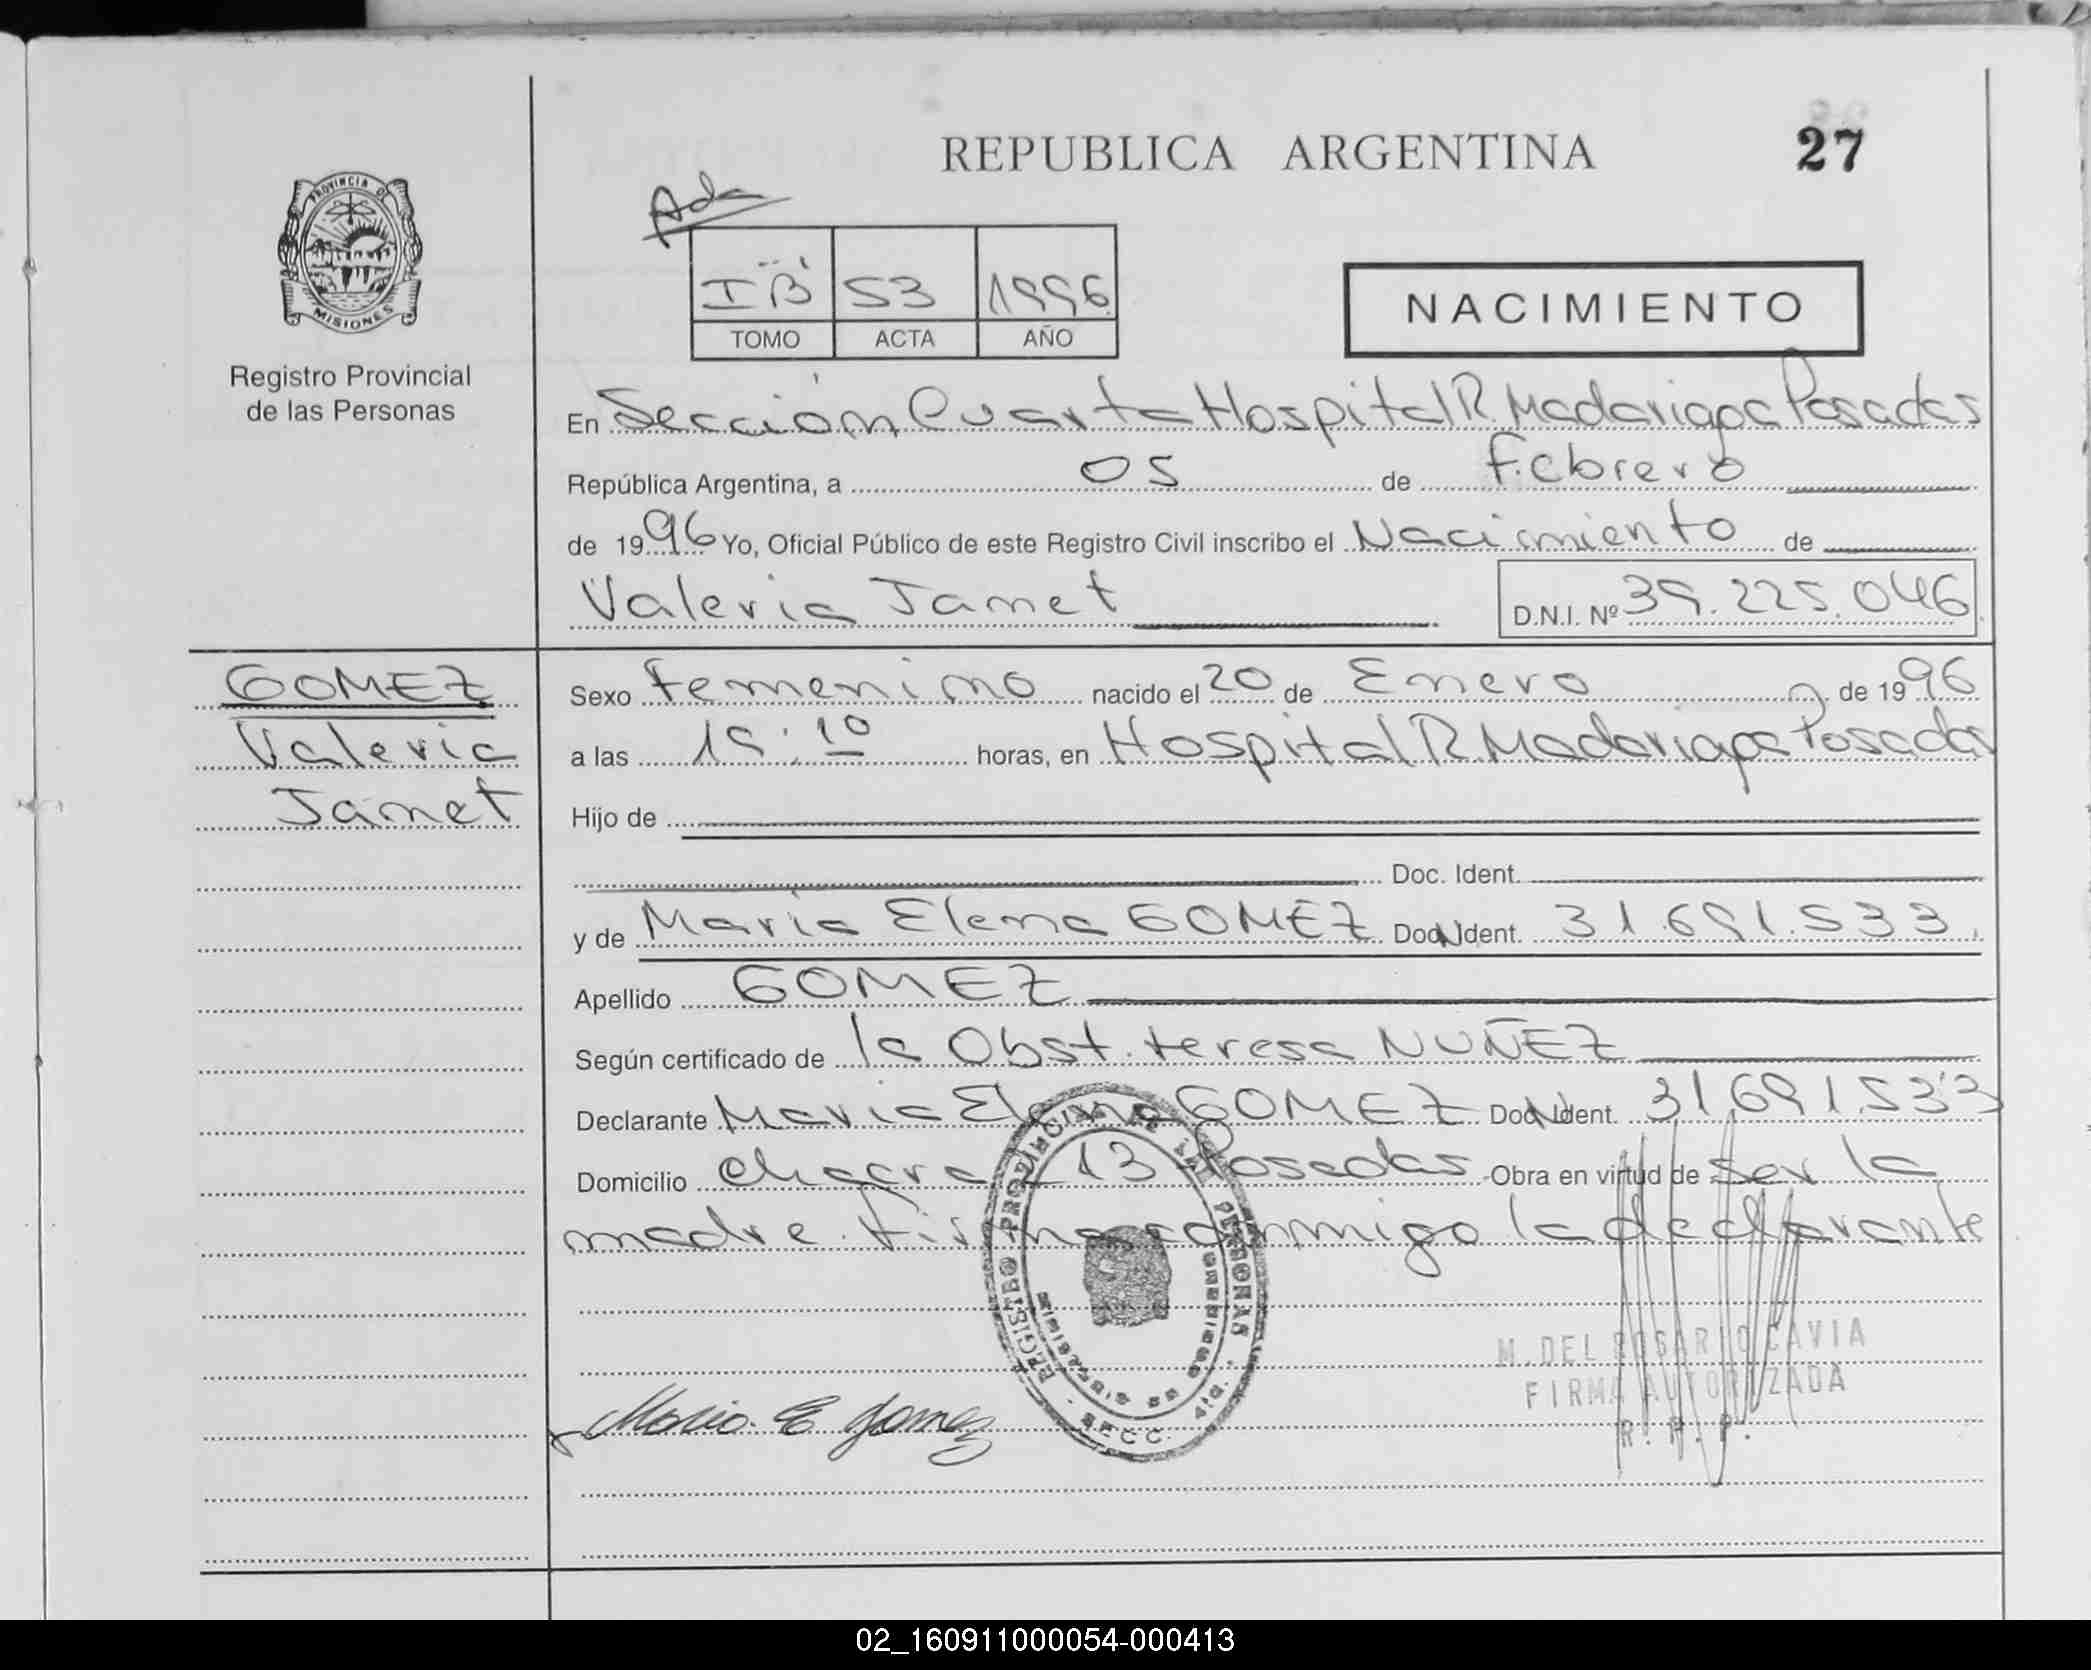 REPUBLICA ARGENTINA
27
PROVINCIA DE
MISIONES
Registro Provincial
de las Personas
Ada
I "B" 53 1996
TOMO ACTA AÑO
NACIMIENTO
En Sección Cuarta Hospital R. Madariaga Posadas
República Argentina, a 05 de Febrero
de 1996 Yo, Oficial Público de este Registro Civil inscribo el Nacimiento de
Valeria Janet D.N.I. Nº 39.225.046
GOMEZ
Valeria
Janet
Sexo femenino nacido el 20 de Enero de 1996
a las 19:10 horas, en Hospital R. Madariaga Posadas
Hijo de
Doc. Ident.
y de Maria Elena GOMEZ Doc. Ident. 31.691.533
Apellido GOMEZ
Según certificado de la Obst. teresa NUÑEZ
Declarante Maria Elena GOMEZ Doc. Ident. 31.691.533
Domicilio chacra 13 Posadas Obra en virtud de ser la
madre. firma conmigo la declarante
REGISTRO PROVINCIAL DE LAS PERSONAS
SECC.
M. DEL ROSARIO CAVIA
FIRMA AUTORIZADA
R. P. P.
Maria E Gomez
02_160911000054-000413